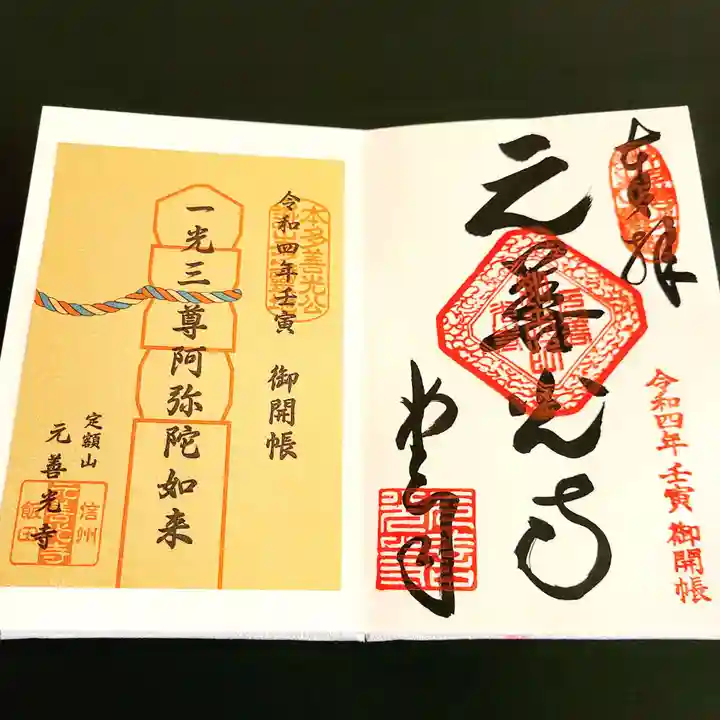 奉拝
元善光寺
令和四年壬寅 御開帳
本多善光公
令和四年壬寅 御開帳
一光三尊阿弥陀如来
定額山
元善光寺
信州
元善光寺
飯田